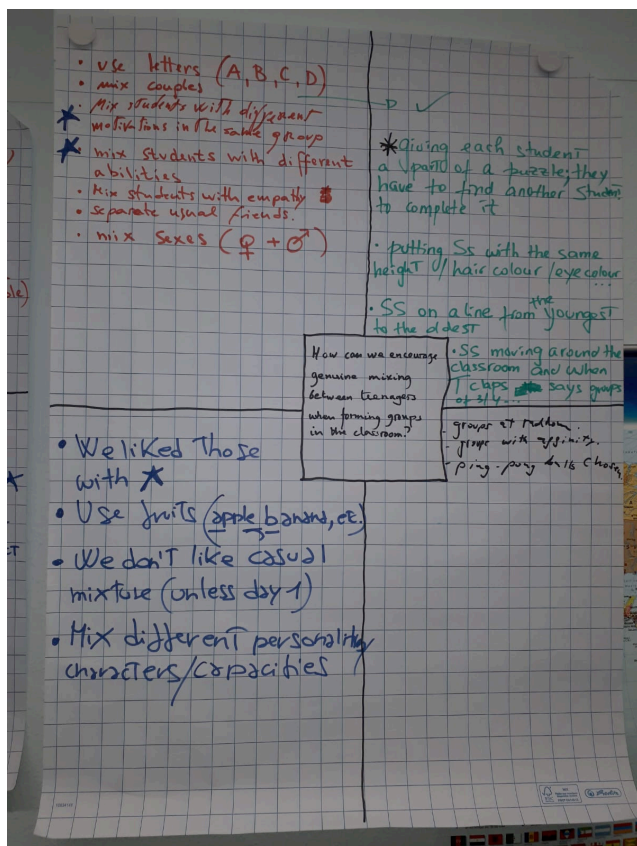 • use letters (A, B, C, D)
• mix couples
• Mix students with different
motivations in the same group
• mix students with different
abilities
• Mix students with empathy
• separate usual friends.
• mix sexes (♀ + ♂)
D ✓
* giving each student
a part of a puzzle; they
have to find another student
to complete it
• putting Ss with the same
height / hair colour / eye colour
...
• SS on a line from the youngest
to the oldest
• SS moving around the
classroom and when
T claps says groups
of 3/4...
How can we encourage
genuine mixing
between teenagers
when forming groups
in the classroom?
- groups at random.
- groups with affinity.
- ping-pong balls
• We liked those
with ★
• Use fruits (apple, banana, etc.)
• We don't like casual
mixture (unless day 1)
• Mix different personality/
characters/capacities